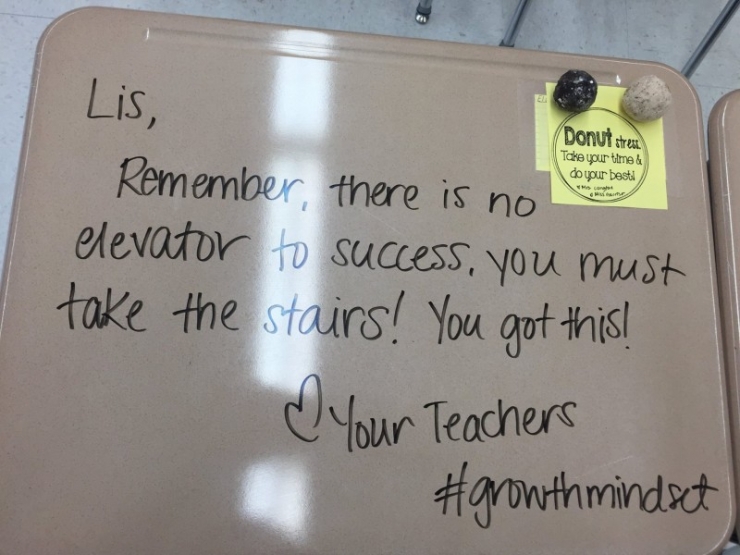 Lis,
Remember, there is no
elevator to success, you must
take the stairs! You got this!
♡ Your Teachers
#growthmindset
Donut stress
Take your time &
do your best!